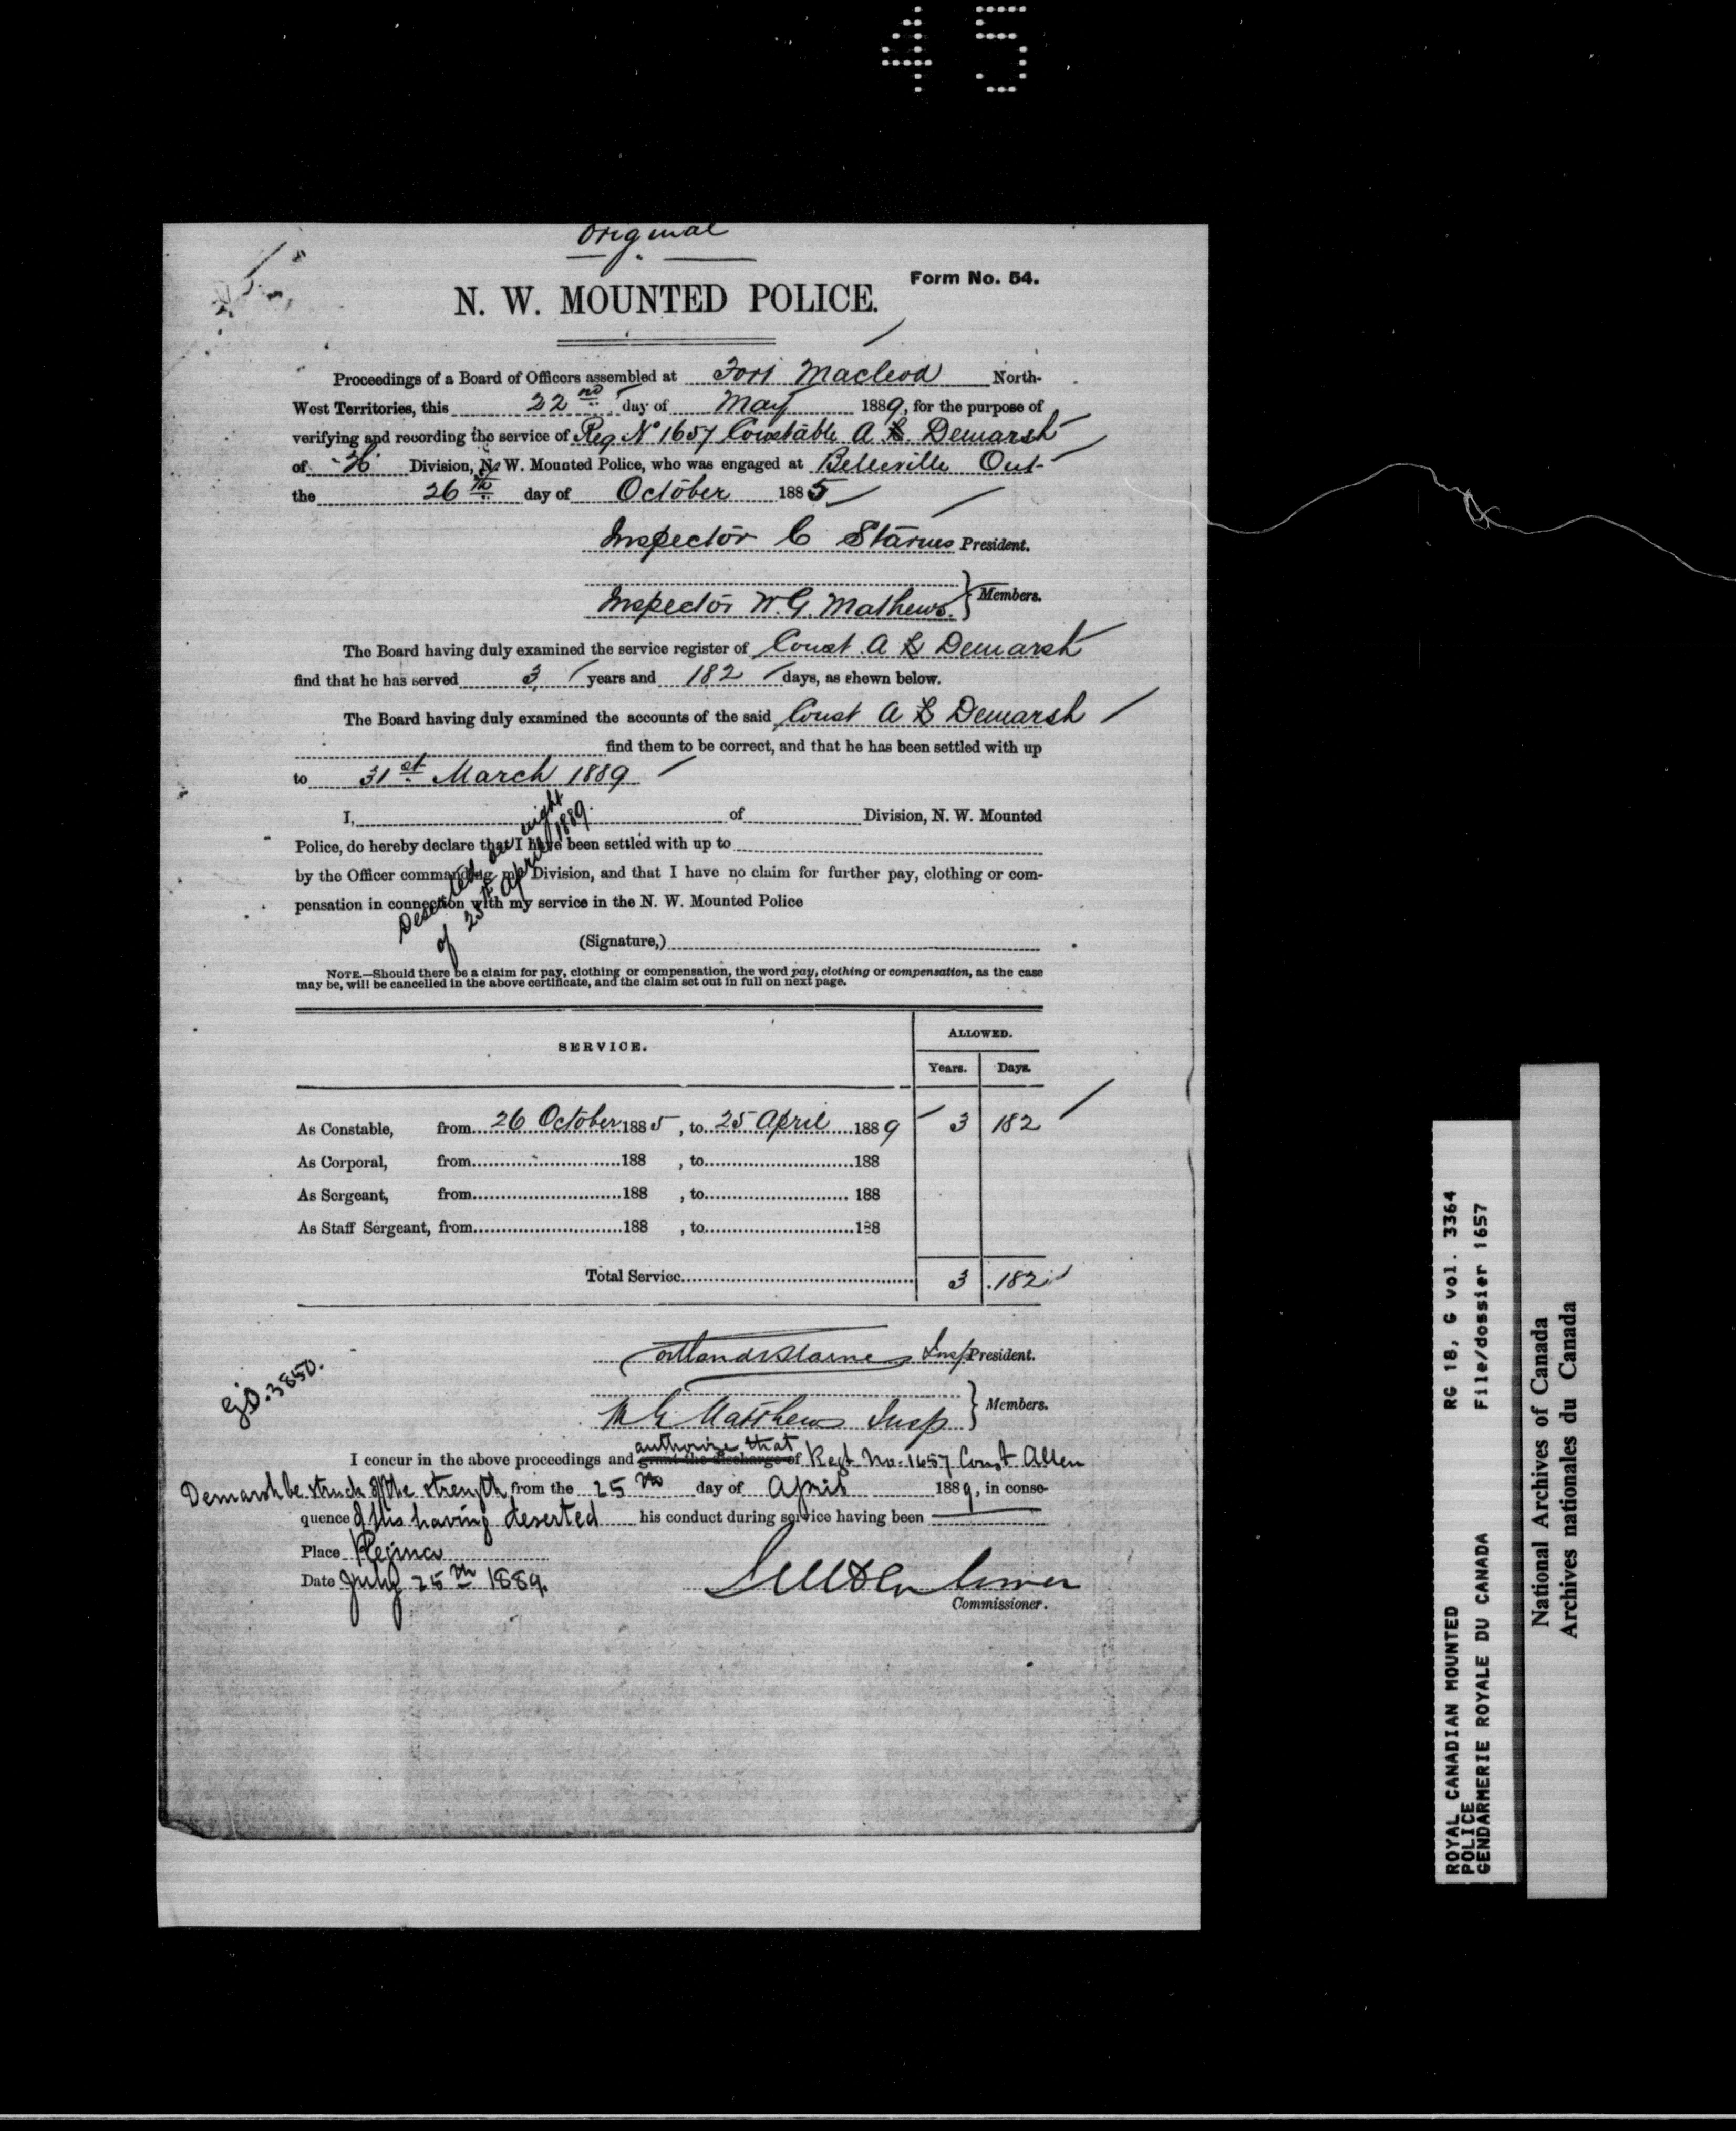 45
Original
Form No. 54.
N. W. MOUNTED POLICE.
Proceedings of a Board of Officers assembled at Fort Macleod North-
West Territories, this 22nd day of May 1889, for the purpose of
verifying and recording the service of Reg No 1657 Constable A Demarsh
of "H" Division, N. W. Mounted Police, who was engaged at Belleville Ont
the 26th day of October 1885
Inspector C Starnes President.
Inspector W. G. Mathews. } Members.
The Board having duly examined the service register of Const. A Demarsh
find that he has served 3 years and 182 days, as shewn below.
The Board having duly examined the accounts of the said Const A Demarsh
find them to be correct, and that he has been settled with up
to 31st March 1889
I, of Division, N. W. Mounted
Police, do hereby declare that I have been settled with up to
by the Officer commanding my Division, and that I have no claim for further pay, clothing or com-
pensation in connection with my service in the N. W. Mounted Police
Deserted on night
of 25th April 1889.
(Signature,)
NOTE.—Should there be a claim for pay, clothing or compensation, the word pay, clothing or compensation, as the case
may be, will be cancelled in the above certificate, and the claim set out in full on next page.
SERVICE.
ALLOWED.
Years. Days.
As Constable, from 26 October 1885, to 25 April 1889 3 182
As Corporal, from 188 , to 188
As Sergeant, from 188 , to 188
As Staff Sergeant, from 188 , to 188
Total Service 3 182
Cortlandt Starnes Insp President.
W G Matthews Insp } Members.
G.O. 3850.
authorize that
I concur in the above proceedings and grant the discharge of Regt. No. 1657 Const Allen
Demarsh be struck off the strength from the 25th day of April 1889, in conse-
quence of his having deserted his conduct during service having been
Place Regina
Date July 25th 1889.
Commissioner.
RG 18, G vol. 3364
File/dossier 1657
ROYAL CANADIAN MOUNTED
POLICE
GENDARMERIE ROYALE DU CANADA
National Archives of Canada
Archives nationales du Canada